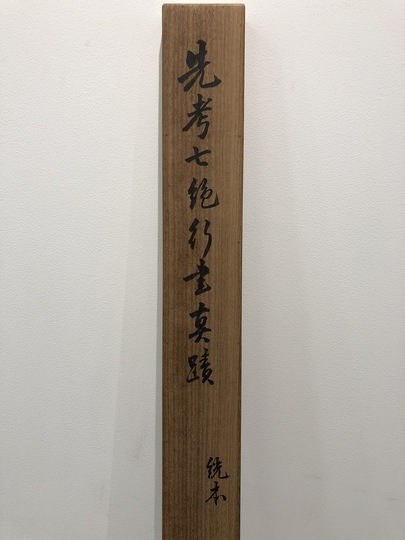 先考七絶行書真蹟
絖本